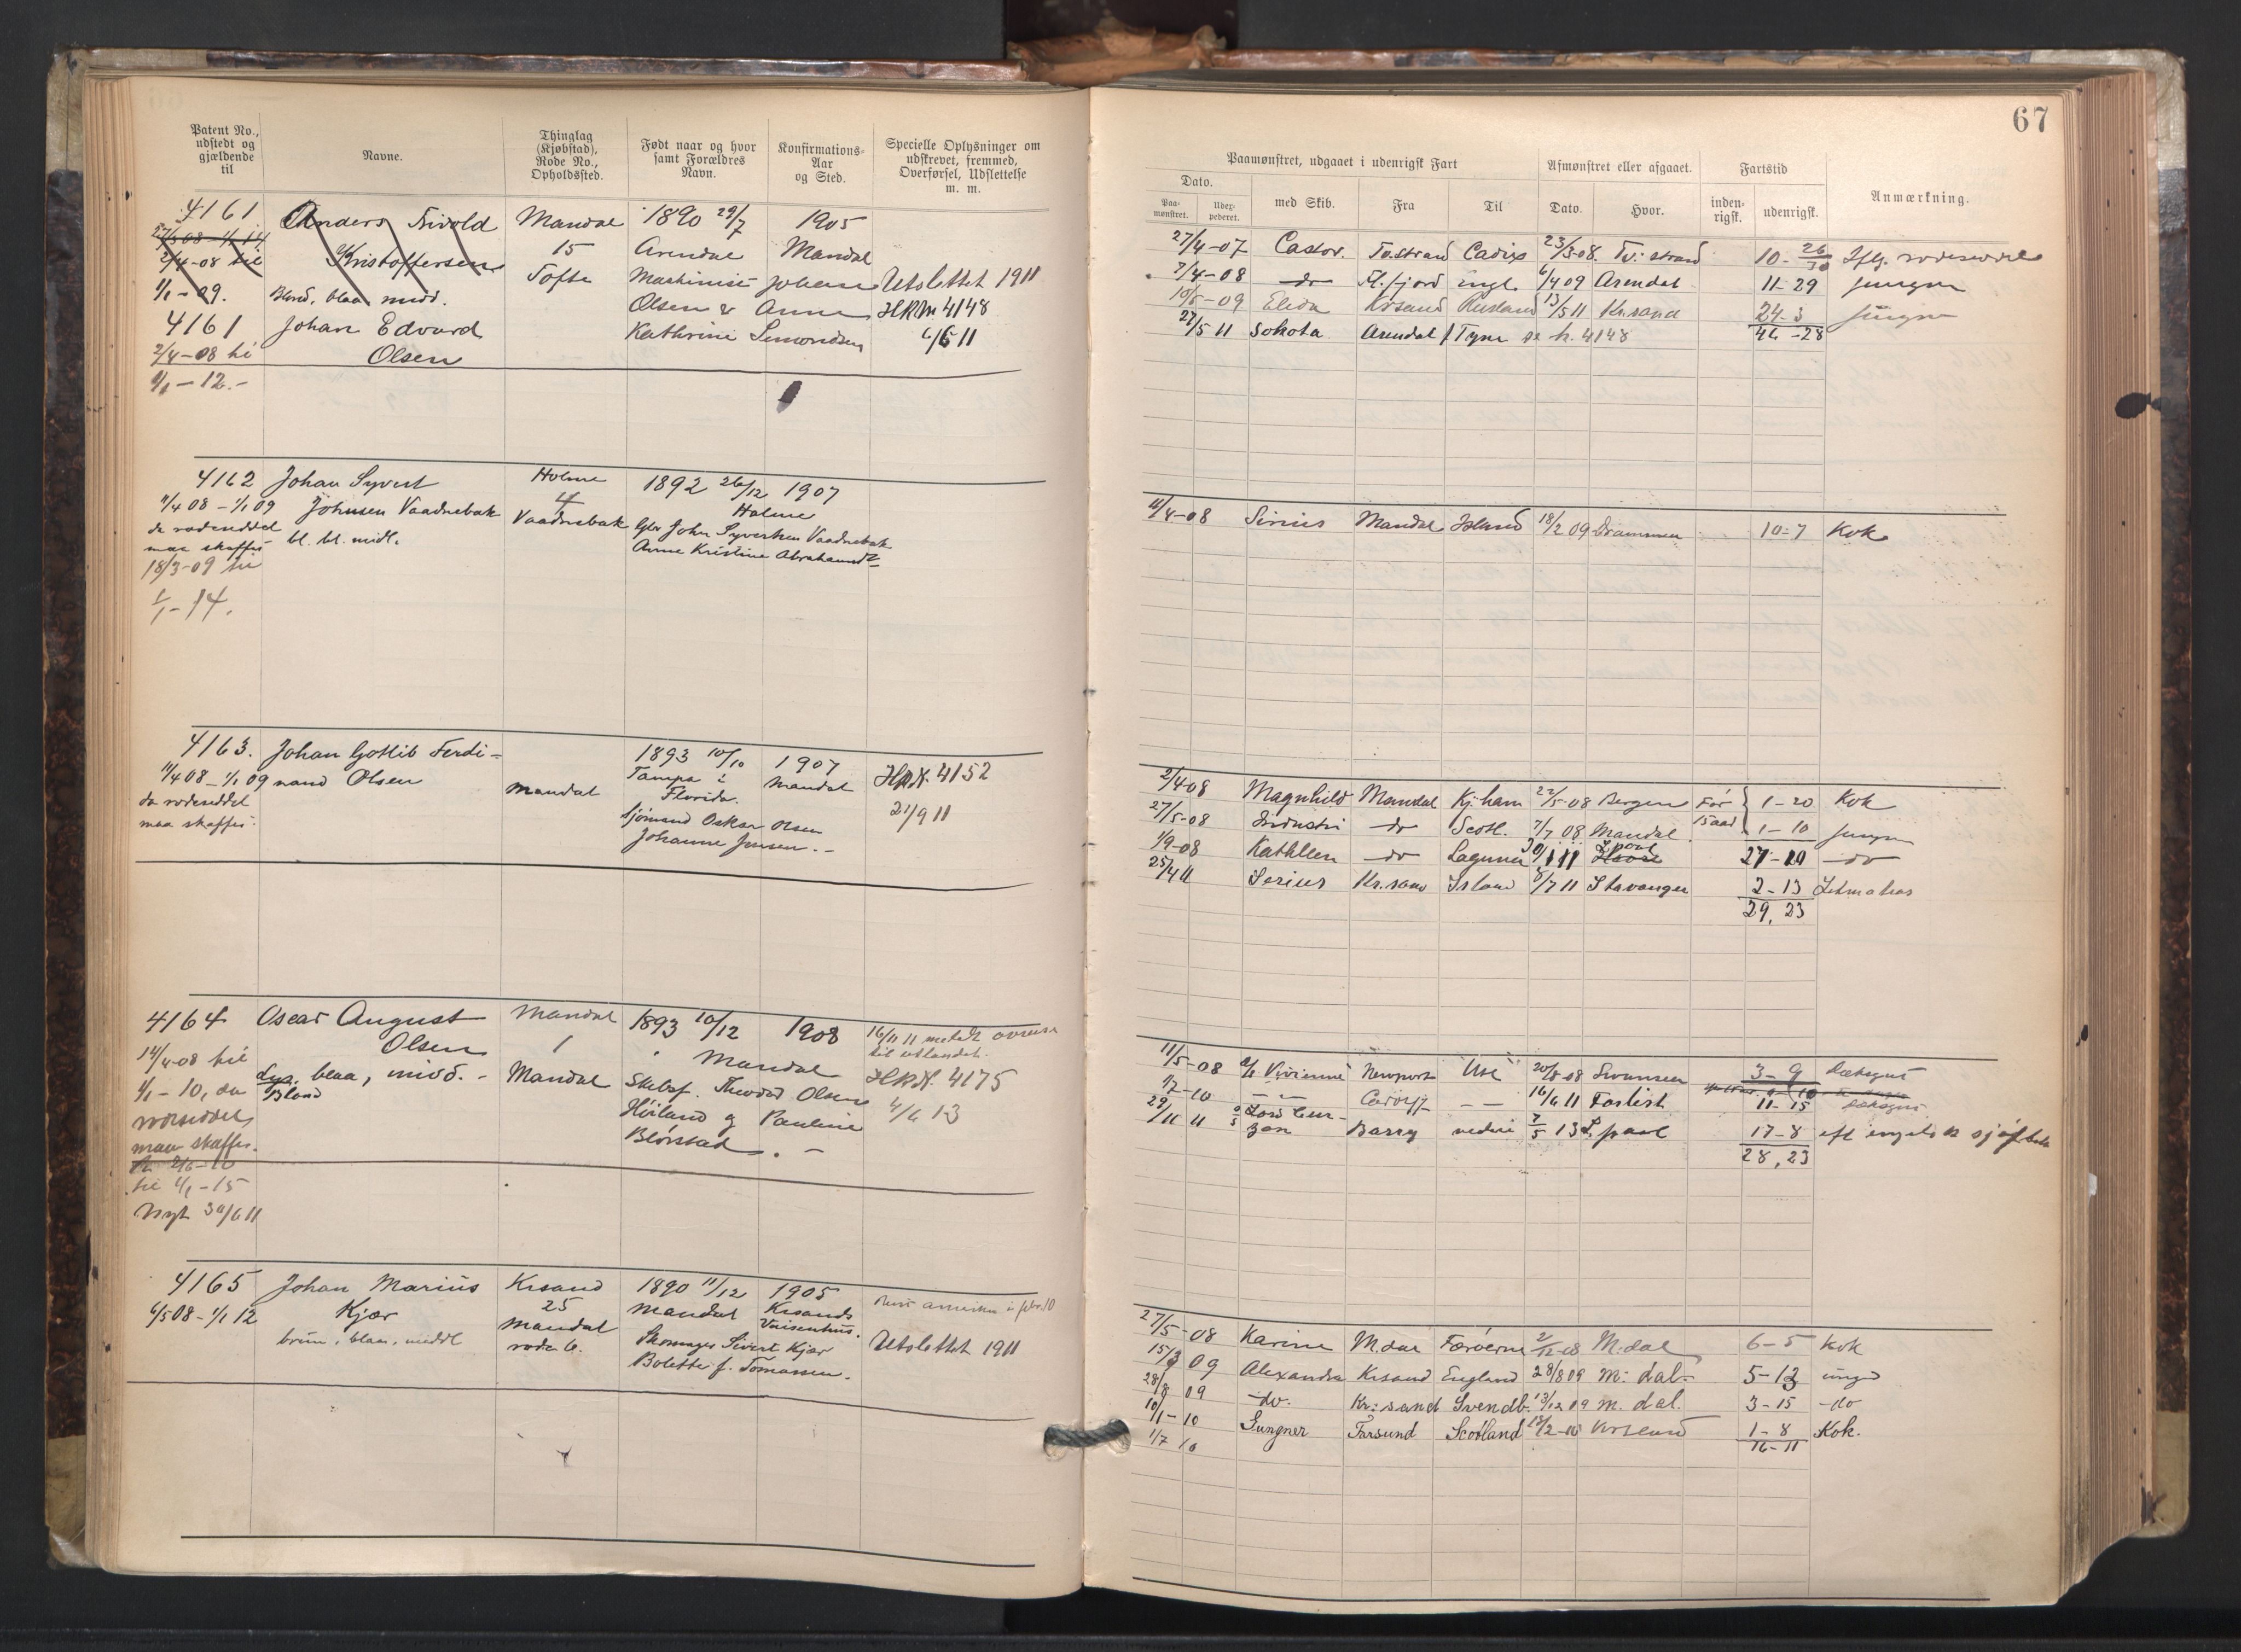 67
Patent No., udstedt og gjældende til
Navne.
Thinglag (Kjøbstad), Rode No., Opholdssted.
Født naar og hvor samt Forældres Navn.
Konfirmations-Aar og Sted.
Specielle Oplysninger om udskrevet, fremmed, Overførsel, Udslettelse m. m.
4161 Anders Kristoffersen
27/3 08 – 1/1 14
2/4-08 til
1/1-09.
Blond, blaa, midd.
4161 Johan Edvard
Olsen
2/4-08 til
1/1-12.-
Mandal
15
Tofte
1890 29/7
1905
Arendal Mandal
Maskinist Johan
Olsen & Anne
Kathrine Simonsen
Utslettet 1911
HRM 4148
6/6 11
4162 Johan Syvert
11/4 08 – 1/1 09 Johnsen Vaadnebak
da rodeseddel bl. bl. midl.
maa skaffes
18/3-09 til
1/1-14.
Holme
4
Vaadnebak
1892 26/12 1907
Holme
Gbr John Syvertsen Vaadnebak
Anne Kristine Abrahamsd-
4163. Johan Gotlib Ferdi-
11/4 08 – 1/1 09 nand Olsen
da rodeseddel
maa skaffes.
Mandal
1893 10/10 1907
Tampa i Mandal
Florida.
Sjømand Oskar Olsen
Johanne Jensen.-
HRN. 4152
21/9 11
4164 Oscar August
Olsen
14/4-08 til
1/1-10, da
rodeseddel
maa skaffes.
til 1/1-15
Nyt 30/6 11
Lys, blaa, midd.-
Blond
Mandal
1
Mandal
1893 10/12 1908
Mandal
Skibsf. Theodor Olsen
Høiland og Pauline
Blørstad.-
16/11 11 meldt avreise
til utlandet.
HRN. 4175
4/6 13
4165 Johan Marius
6/5 08 – 1/1 12 Kjær
brun, blaa, middl
Krsand
25
Mandal
rode 6.
1890 11/12 1905
Mandal Krsands
Vaisenhus.
Skomager Sivert Kjær
Bolette f. Tomassen.
Reist amerika i febr. 10
Utslettet 1911
Paamønstret, udgaaet i udenrigsk Fart
Afmønstret eller afgaaet.
Fartstid
Anmærkning.
Dato.
Paa-mønstret.
Udex-pederet.
med Skib.
Fra
Til
Dato.
Hvor.
inden-rigsk.
udenrigsk.
27/4-07 Castor. Tvstrand Cadix 23/3-08. Tv:strand 10-26/30 Iflg. rodeseddel
7/4-08 do Fl.fjord Engl. 6/4 09 Arendal 11-29 jungm
10/5-09 Elida Krsand Rusland 13/5 11 Kr.sand 24-3 jungm
27/5 11 Sokota Arendal Tyne se h. 4148 46-28
11/4-08 Sirius Mandal Island 18/2 09 Drammen 10-7 Kok
2/4-08 Magnhild Mandal Kj.havn 22/5-08 Bergen Før 15 aar 1-20 Kok
27/5-08 Industri do Scotl. 7/7 08 Mandal 1-10 jungm
1/9-08 Kathleen do Laguna 30/1 11 L.pool 27-10 do
25/4 11 Serius Kr.sand Island 8/7 11 Stavanger 2-13 Letmatros
29, 23
11/5-08 Vivienne Newport Use 20/8-08 Swansea 3-9 Dæksgut
1/7-10 Cardiff 16/6 11 Farlist 11-15 dæksgut
29/11 11 Lord Cur-
zon Barry 7/5 13 L.pool 17-8 eft engelsk sjøf.bok
28, 23
27/5-08 Karine M.dal Færøerne 2/12-08 M.dal 6-5 Kok
15/3 09 Alexandra Krsand England 28/8 09 M:dal- 5-13 ungd
28/8 09 do. Kr:sand Svendb. 13/12 09 M.dal. 3-15 do
10/1-10 Gungner Farsund Scotland 18/2-10 Krsand 1-8 Kok.
1/7 10 16-11